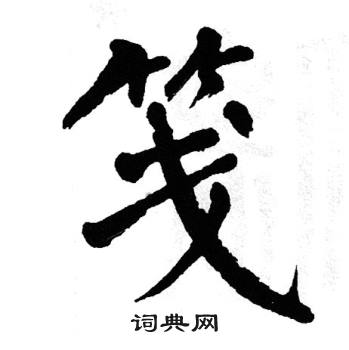 笺
词典网